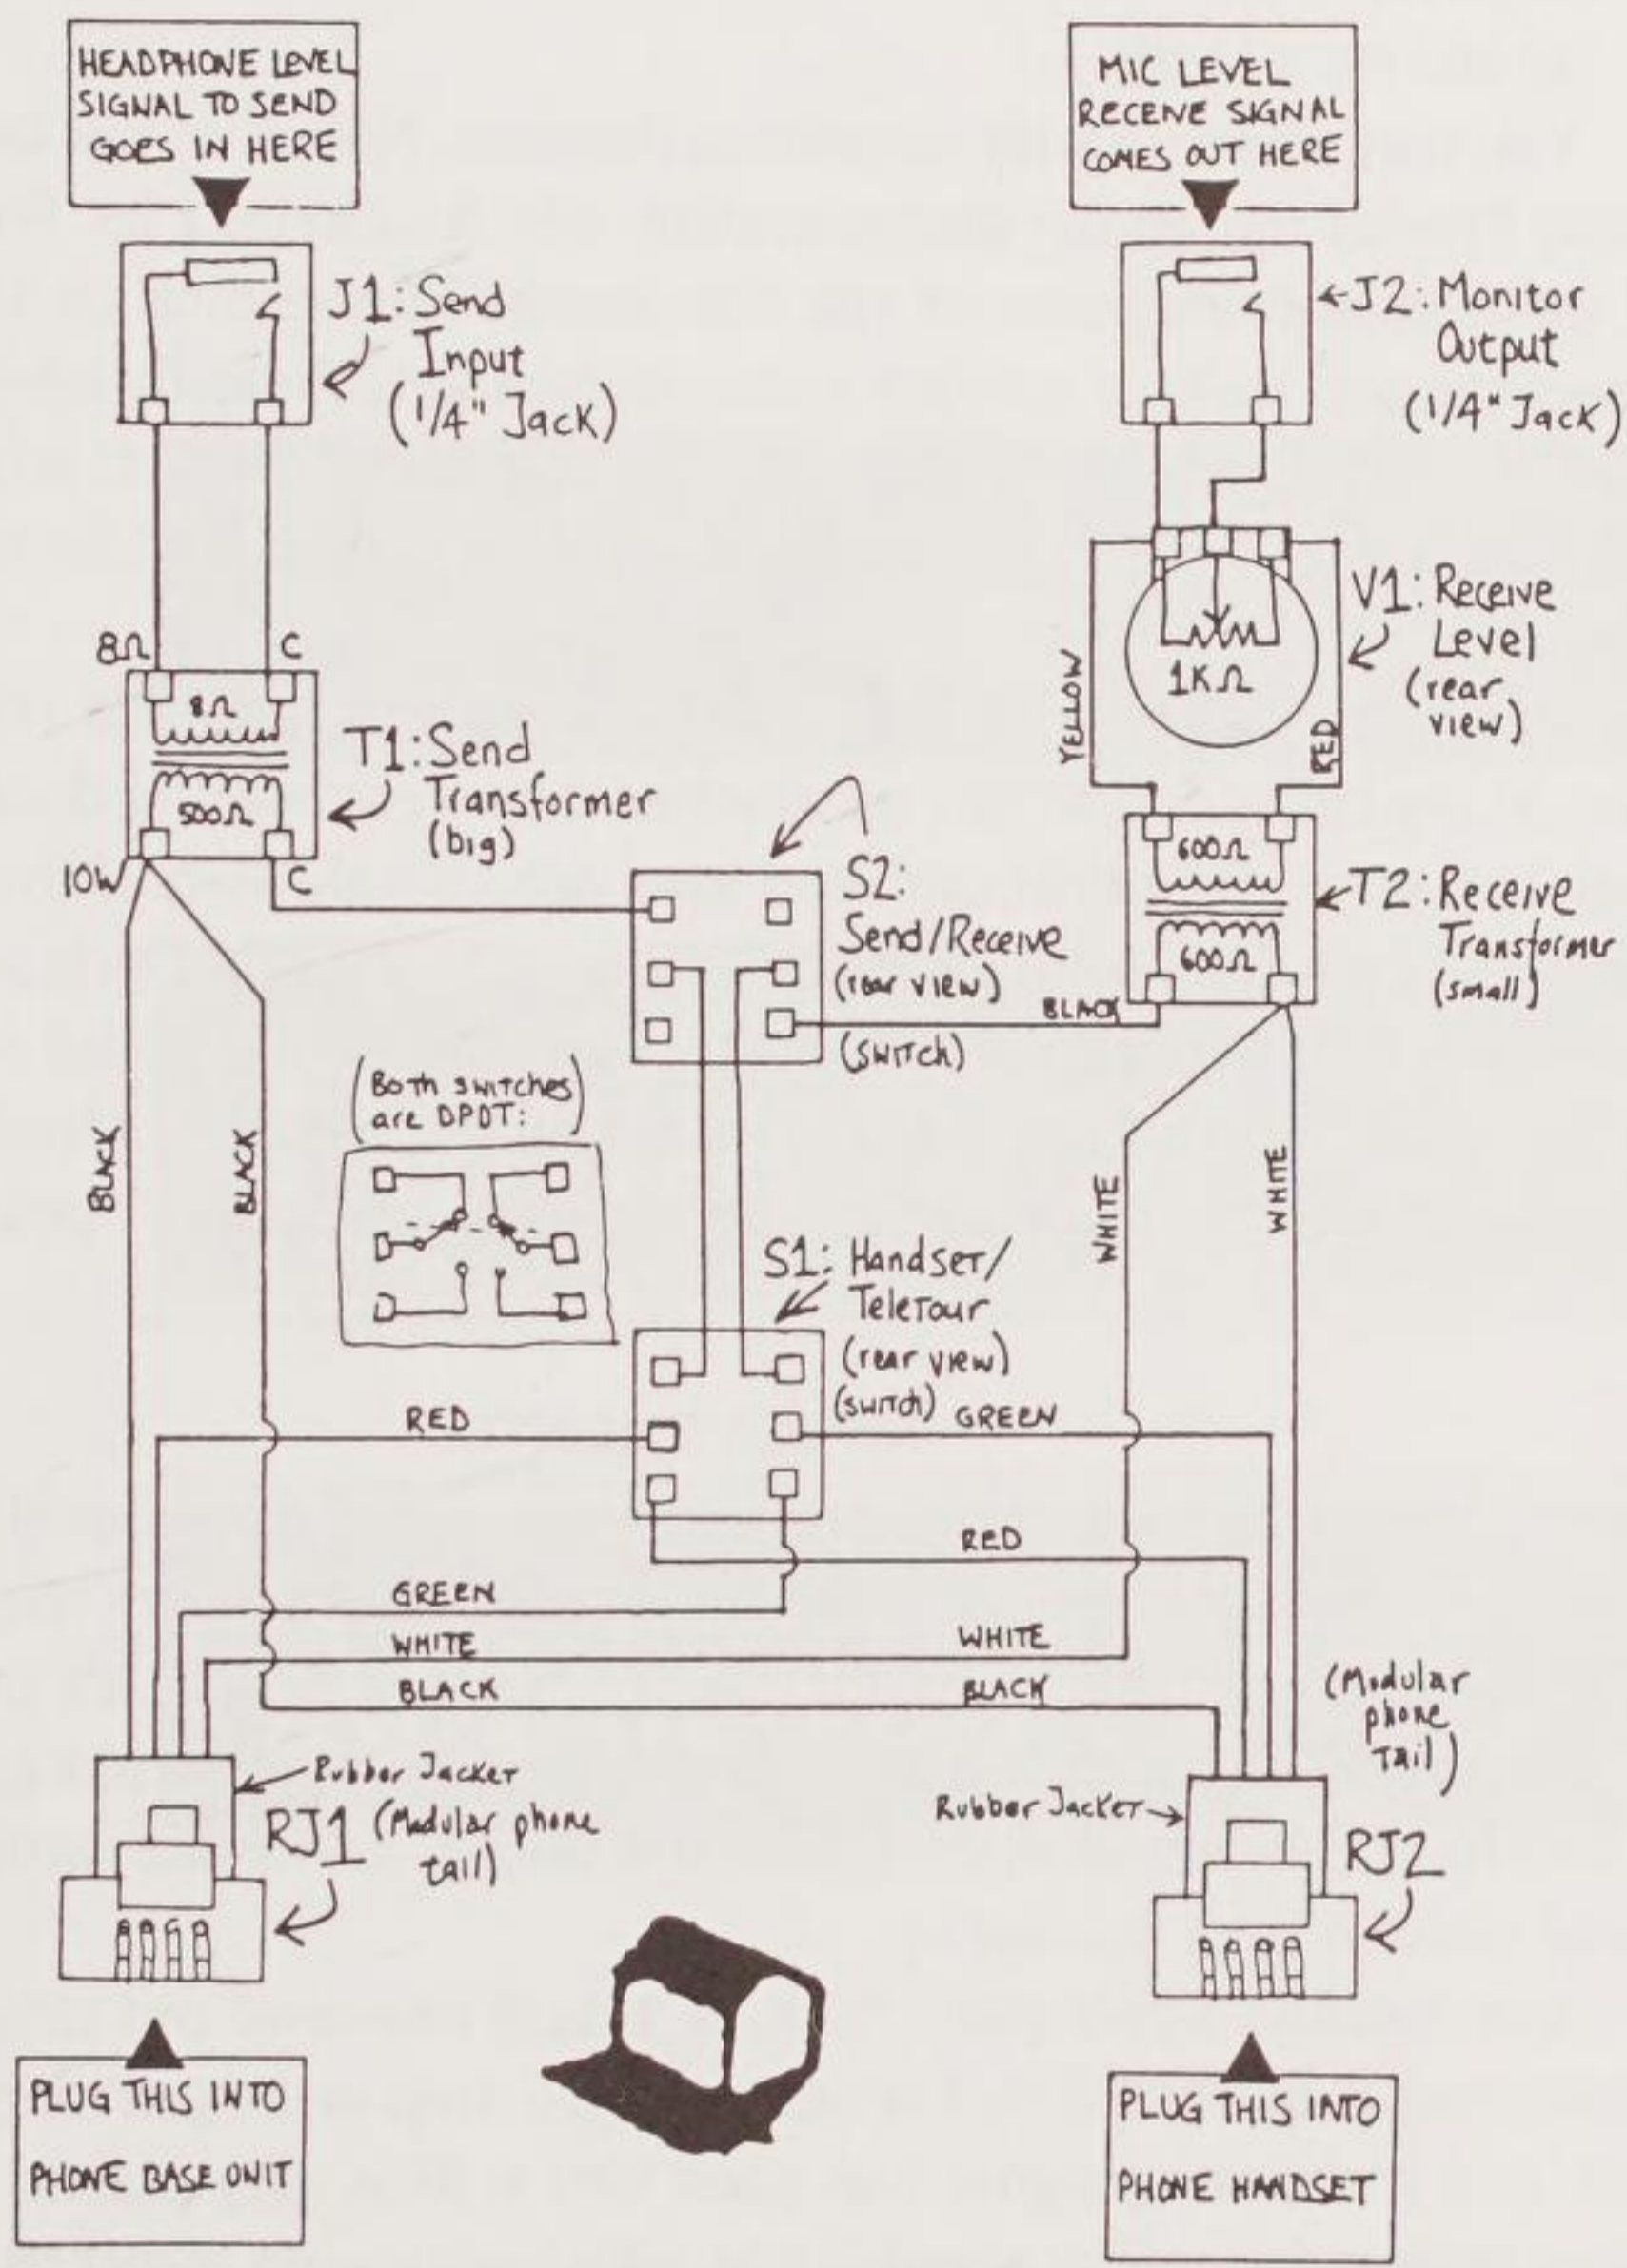 HEADPHONE LEVEL
SIGNAL TO SEND
GOES IN HERE
MIC LEVEL
RECEIVE SIGNAL
COMES OUT HERE
J1: Send
Input
(1/4" Jack)
J2: Monitor
Output
(1/4" Jack)
8Ω
C
8Ω
500Ω
10W
C
T1: Send
Transformer
(big)
V1: Receive
Level
(rear
view)
1KΩ
YELLOW
RED
600Ω
600Ω
T2: Receive
Transformer
(small)
S2:
Send/Receive
(rear view)
(switch)
BLACK
(Both switches
are DPDT:)
BLACK
BLACK
WHITE
WHITE
S1: Handset/
Teletour
(rear view)
(switch)
RED
GREEN
RED
GREEN
WHITE
WHITE
BLACK
BLACK
(Modular
phone
tail)
Rubber Jacket
RJ1 (Modular phone
tail)
Rubber Jacket
RJ2
PLUG THIS INTO
PHONE BASE UNIT
PLUG THIS INTO
PHONE HANDSET